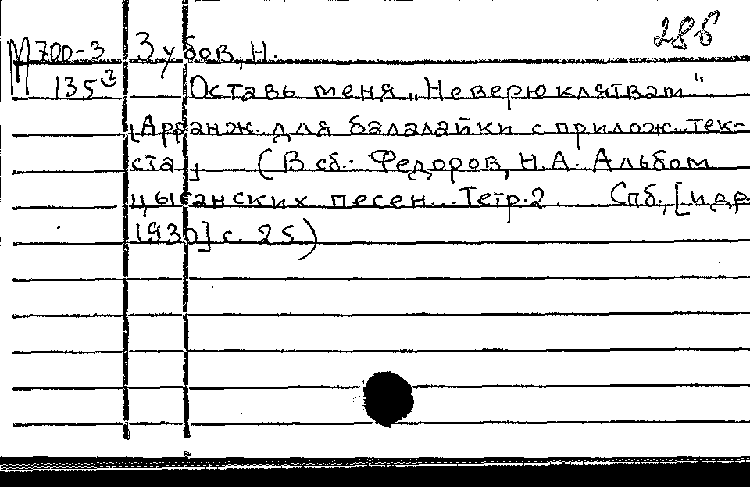 286
М 700-3 Зубов, Н.
135³ Оставь меня „Не верю клятвам"
[Арранж. для балалайки с прилож. тек-
ста] (В сб.: Федоров, Н.А. Альбом
цыганских песен. Тетр. 2 Спб, [ц др
193 ] с. 25)